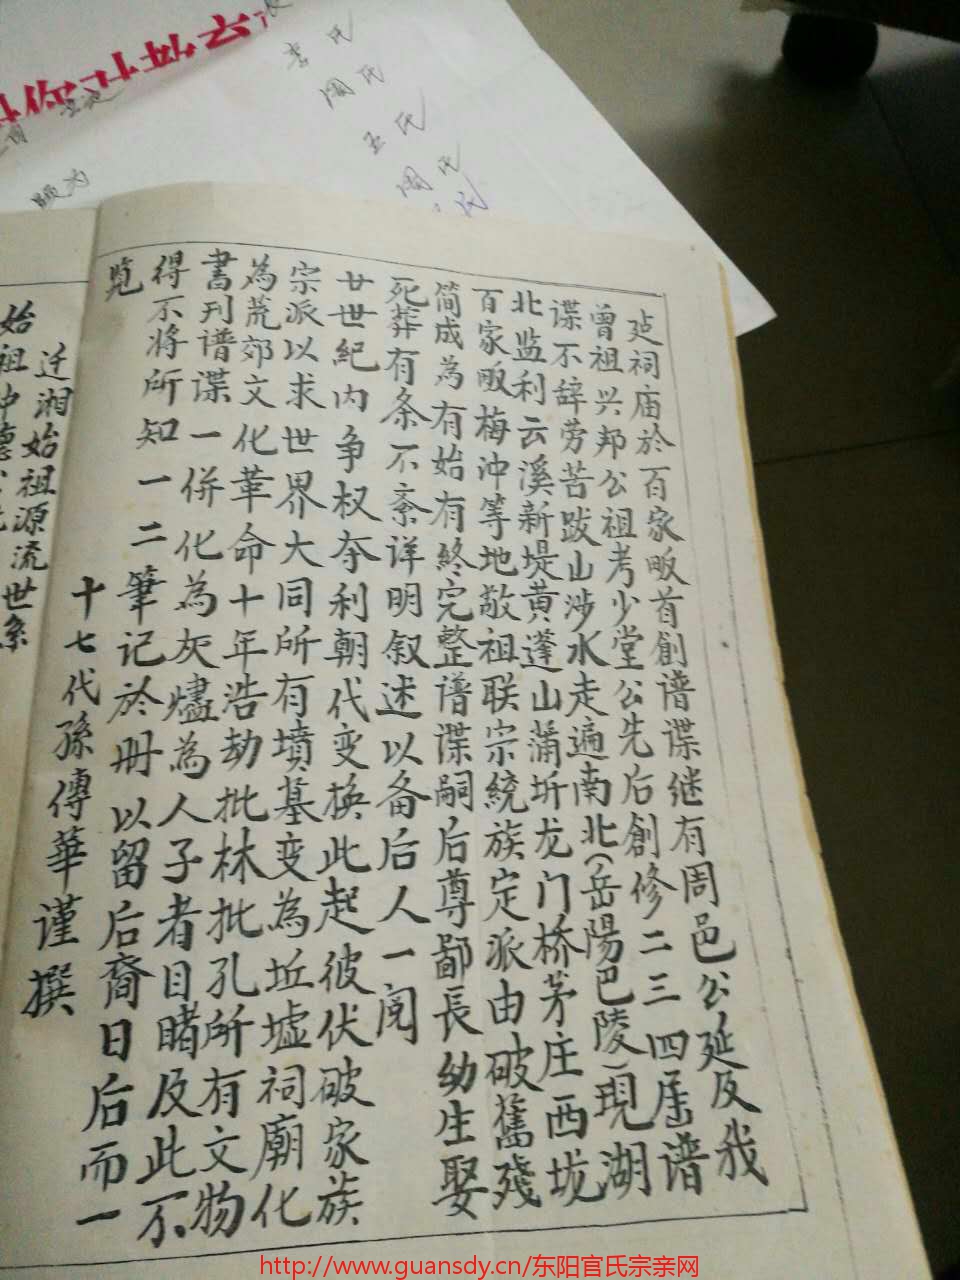 延祠庙於百家畈首創谱谍继有周邑公延及我
曾祖兴邦公祖考少堂公先后創修二三四届谱
谍不辞劳苦跋山涉水走遍南北(岳陽巴陵)現湖
北监利云溪新堤黄蓬山蒲圻龙门桥茅庄西垅
百家畈梅沖等地敬祖联宗統族定派由破舊殘
简成為有始有終完整谱谍嗣后尊鄙長幼生娶
死葬有条不紊详明叙述以备后人一阅
廿世紀内争权夺利朝代变换此起彼伏破家族
宗派以求世界大同所有墳墓变為坵墟祠廟化
為荒郊文化革命十年浩劫批林批孔所有文物
書刊谱谍一併化為灰燼為人子者目睹及此不
得不将所知一二筆记於冊以留后裔日后而一
览
十七代孫傳華谨撰
迁湘始祖源流世系
李氏
周氏
王氏
周氏
氏
http://www.guansdy.cn/东阳官氏宗亲网